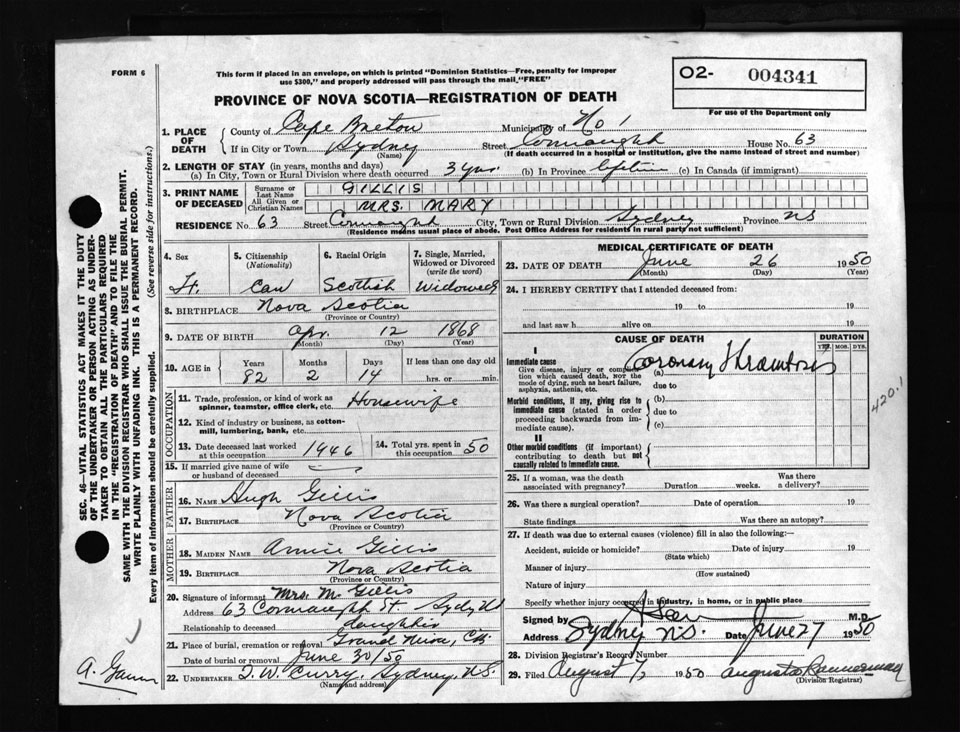 FORM 6
This form if placed in an envelope, on which is printed "Dominion Statistics—Free, penalty for improper
use $300," and properly addressed will pass through the mail, "FREE"
O2- 004341
For use of the Department only
PROVINCE OF NOVA SCOTIA—REGISTRATION OF DEATH
1. PLACE OF DEATH
County of Cape Breton Municipality of No 1
If in City or Town Sydney (Name) Street Connaught House No. 63
(If death occurred in a hospital or institution, give the name instead of street and number)
2. LENGTH OF STAY (in years, months and days)
(a) In City, Town or Rural Division where death occurred 3 yrs (b) In Province lifetime (c) In Canada (if immigrant)
3. PRINT NAME OF DECEASED
Surname or Last Name GILLIS
All Given or Christian Names MRS. MARY
RESIDENCE No. 63 Street Connaught City, Town or Rural Division Sydney Province NS
(Residence means usual place of abode. Post Office Address for Residents in rural parts not sufficient)
4. Sex
F.
5. Citizenship (Nationality)
Can
6. Racial Origin
Scottish
7. Single, Married, Widowed or Divorced (write the word)
Widowed
8. BIRTHPLACE Nova Scotia
(Province or Country)
9. DATE OF BIRTH Apr. 12 1868
(Month) (Day) (Year)
10. AGE in
Years Months Days If less than one day old
82 2 14 hrs. or min.
OCCUPATION
11. Trade, profession, or kind of work as spinner, teamster, office clerk, etc. Housewife
12. Kind of industry or business, as cotton-mill, lumbering, bank, etc.
13. Date deceased last worked at this occupation 1946
14. Total yrs. spent in this occupation 50
15. If married give name of wife or husband of deceased
FATHER
16. NAME Hugh Gillis
17. BIRTHPLACE Nova Scotia
(Province or Country)
MOTHER
18. MAIDEN NAME Annie Gillis
19. BIRTHPLACE Nova Scotia
(Province or Country)
20. Signature of informant Mrs. M. Gillis
Address 63 Connaught St Sydney
Relationship to deceased daughter
21. Place of burial, cremation or removal Grand Mira, C.B.
Date of burial or removal June 30/50
22. UNDERTAKER T. W. Curry, Sydney, N.S.
(Name and address)
MEDICAL CERTIFICATE OF DEATH
23. DATE OF DEATH June 26 1950
(Month) (Day) (Year)
24. I HEREBY CERTIFY that I attended deceased from:
19 to 19
and last saw h alive on 19
CAUSE OF DEATH
DURATION
YRS. MOS. DYS.
I
Immediate cause
Give disease, injury or complication which caused death, NOT the mode of dying, such as heart failure, asphyxia, asthenia, etc.
(a) Coronary Thrombosis
due to
Morbid conditions, if any, giving rise to immediate cause (stated in order proceeding backwards from immediate cause).
(b)
due to
(c)
II
Other morbid conditions (if important) contributing to death but not causally related to immediate cause.
420.1
25. If a woman, was the death associated with pregnancy? Duration weeks. Was there a delivery?
26. Was there a surgical operation? Date of operation 19
State findings Was there an autopsy?
27. If death was due to external causes (violence) fill in also the following:
Accident, suicide or homicide? Date of injury 19
(State which)
Manner of injury
(How sustained)
Nature of injury
Specify whether injury occurred in industry, in home, or in public place
Signed by M.D.
Address Sydney N.S. Date June 27 1950
28. Division Registrar's Record Number
29. Filed August 1950 Augusta Bannerman
(Division Registrar)
SEC. 46—VITAL STATISTICS ACT MAKES IT THE DUTY
OF THE UNDERTAKER OR PERSON ACTING AS UNDER-
TAKER TO OBTAIN ALL THE PARTICULARS REQUIRED
IN THE "REGISTRATION OF DEATH" AND TO FILE THE
SAME WITH THE DIVISION REGISTRAR WHO SHALL ISSUE THE BURIAL PERMIT.
WRITE PLAINLY WITH UNFADING INK. THIS IS A PERMANENT RECORD.
Every item of information should be carefully supplied. (See reverse side for instructions.)